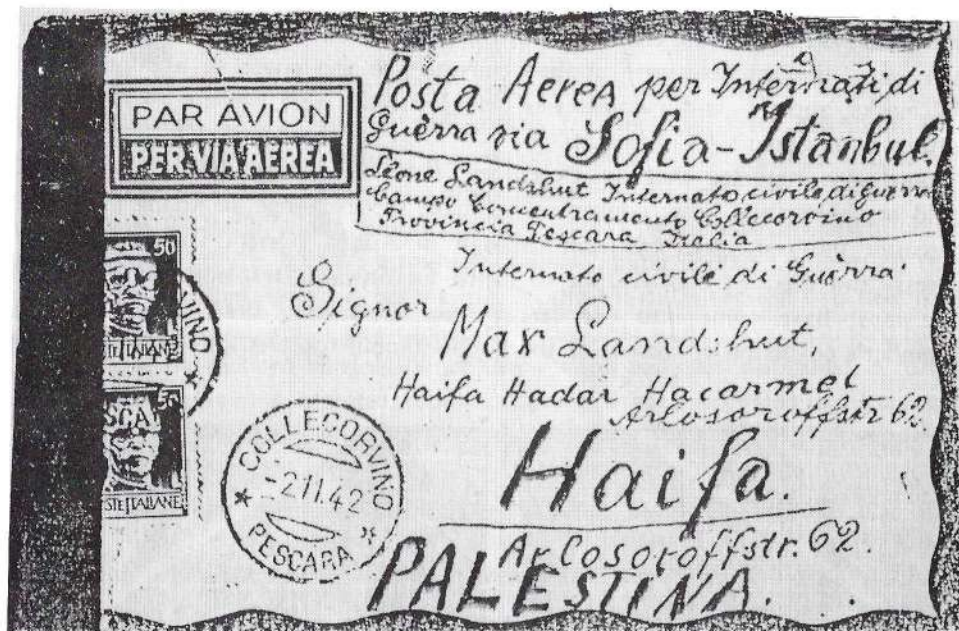 PAR AVION
PER VIA AEREA
Posta Aerea per Internati di
Guèrra via Sofia-Istanbul.
Leone Landshut Internato civile di guerra
Campo Concentramento Collecorvino
Provincia Pescara Italia
Internato civile di Guèrra
Signor
Max Landshut,
Haifa Hadar Hacarmel
Arlosoroffstr 62.
Haifa.
Arlosoroffstr. 62.
PALESTINA.
50
STE ITALIANE
VINO
50
SCA
STE ITALIANE
COLLECORVINO
-2.11.42
PESCARA